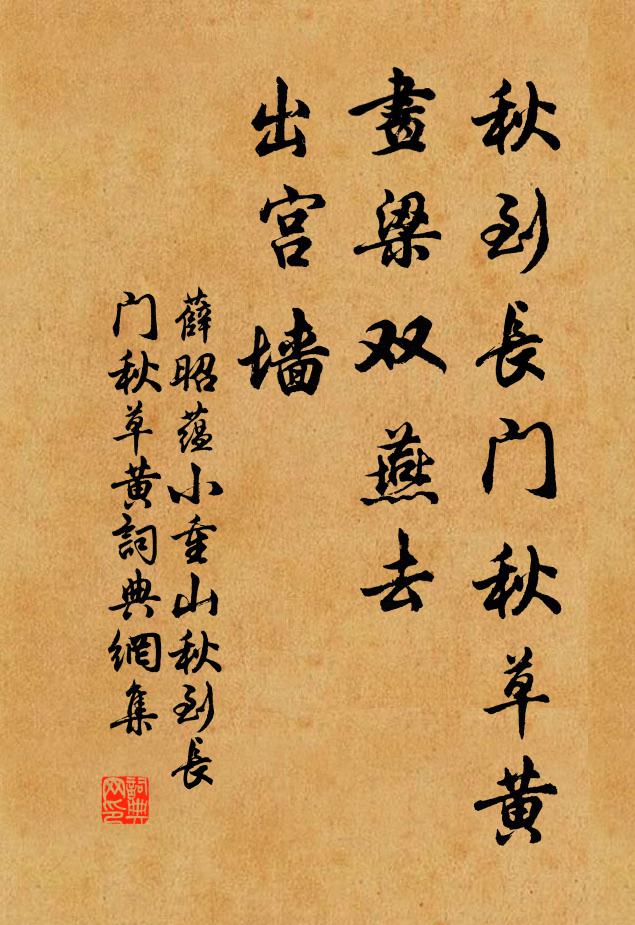 秋到長门秋草黄
畫梁双燕去
出宫墙
薛昭蕴小重山秋到長
门秋草黄詞典網集
詞典网印